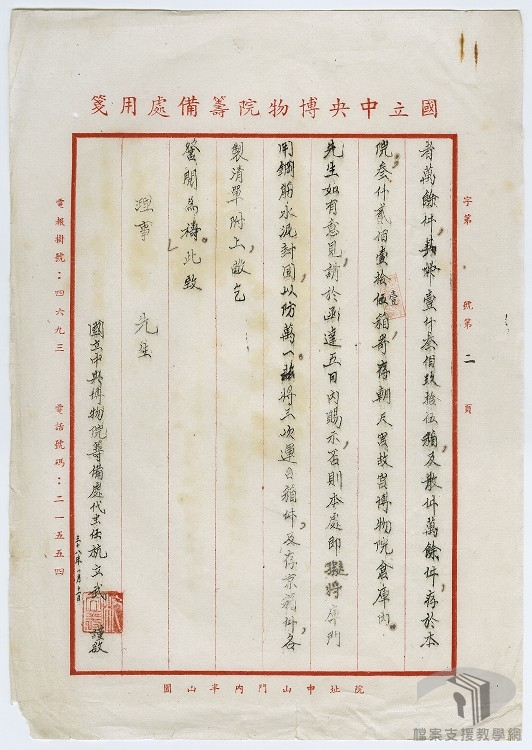 國立中央博物院籌備處用箋
字第
號第二頁
者萬餘件，裝箱壹仟叁佰玖拾伍箱，及散件萬餘件，存於本
院，叁仟貳佰壹拾伍箱寄存朝天宮故宮博物院倉庫內，
壹
先生如有意見，請於函達五日內賜示，否則本處即擬將庫門
用鋼筋水泥封固，以防萬一。茲將三次運台箱件，及存京箱件各
製清單附上，敬乞
鑒閱為禱。此致
理事
先生
國立中央博物院籌備處代主任杭立武 謹啟
三十八年 月 日
電報掛號：四六九三
電話號碼：二一五五四
院址中山門內半山園
檔案支援教學網